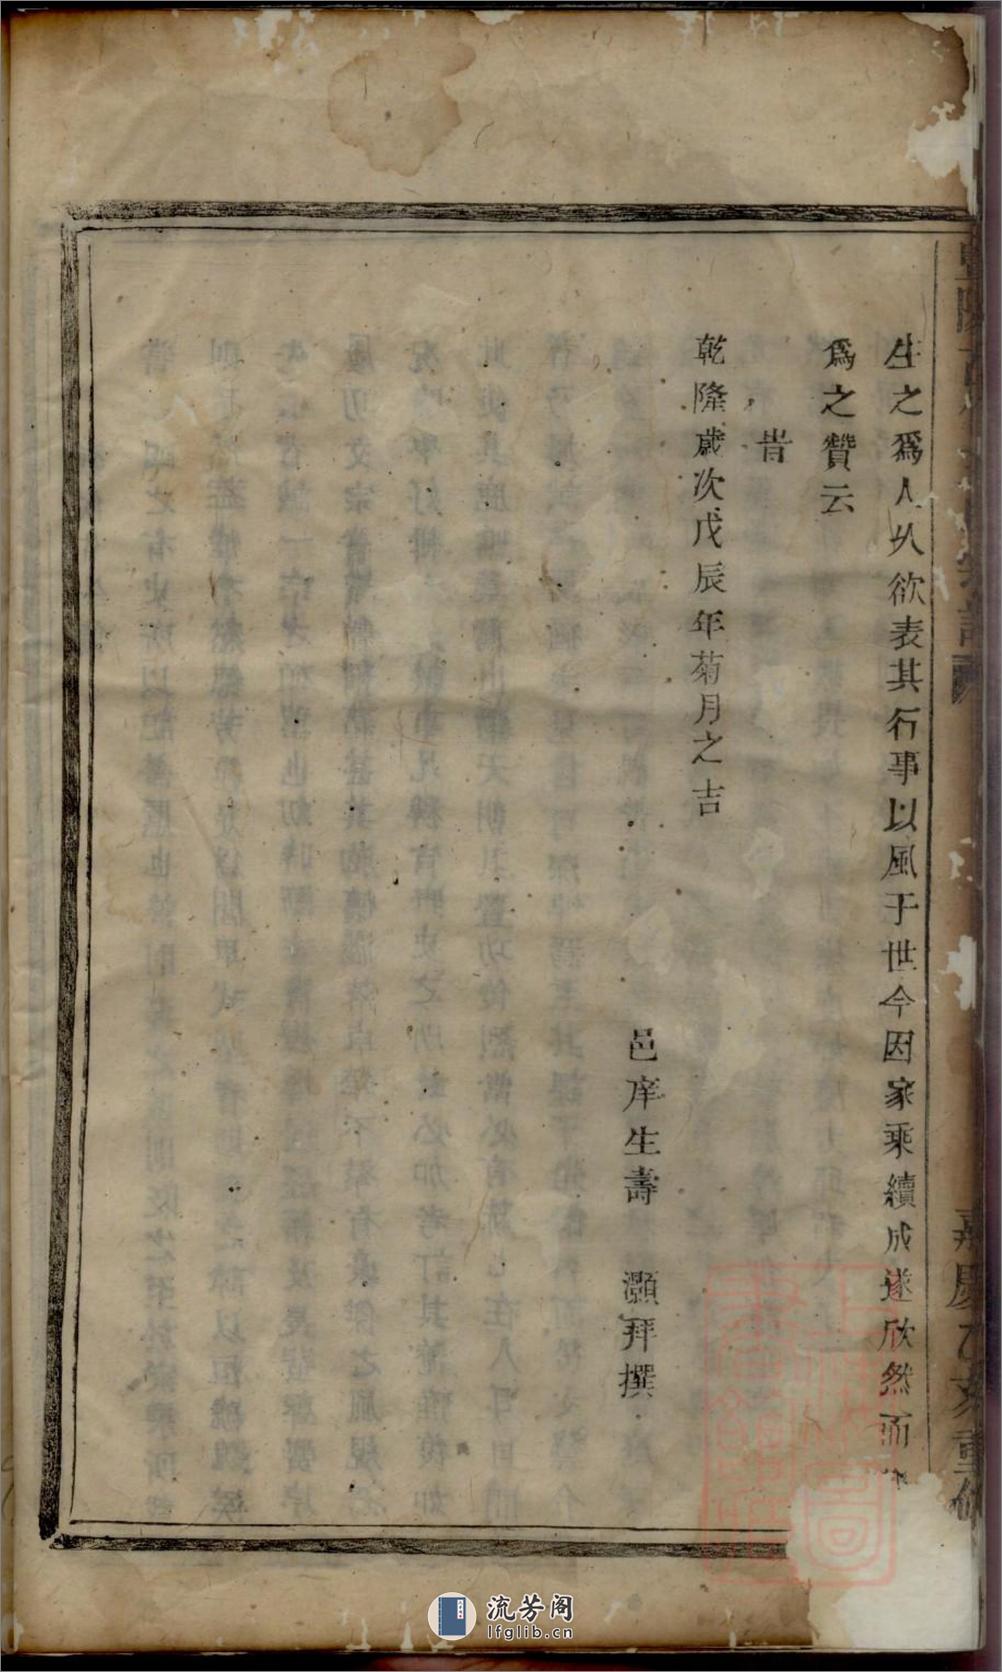 生之爲人久欲表其行事以風于世今因家乘續成遂欣然而
爲之贊云
旹
乾隆歲次戊辰年菊月之吉
邑庠生壽 灝拜撰
嘉慶乙亥重修
流芳阁
lfglib.cn